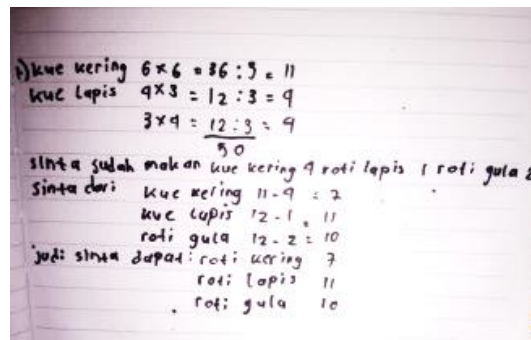 1) kue kering 6 x 6 = 36 : 3 = 11
kue lapis 4 x 3 = 12 : 3 = 4
3 x 4 = 12 : 3 = 4
50
sinta sudah makan kue kering 4 roti lapis 1 roti gula 2
Sinta dari kue kering 11 - 4 = 7
kue lapis 12 - 1 = 11
roti gula 12 - 2 = 10
jadi sinta dapat : roti kering 7
roti lapis 11
roti gula 10